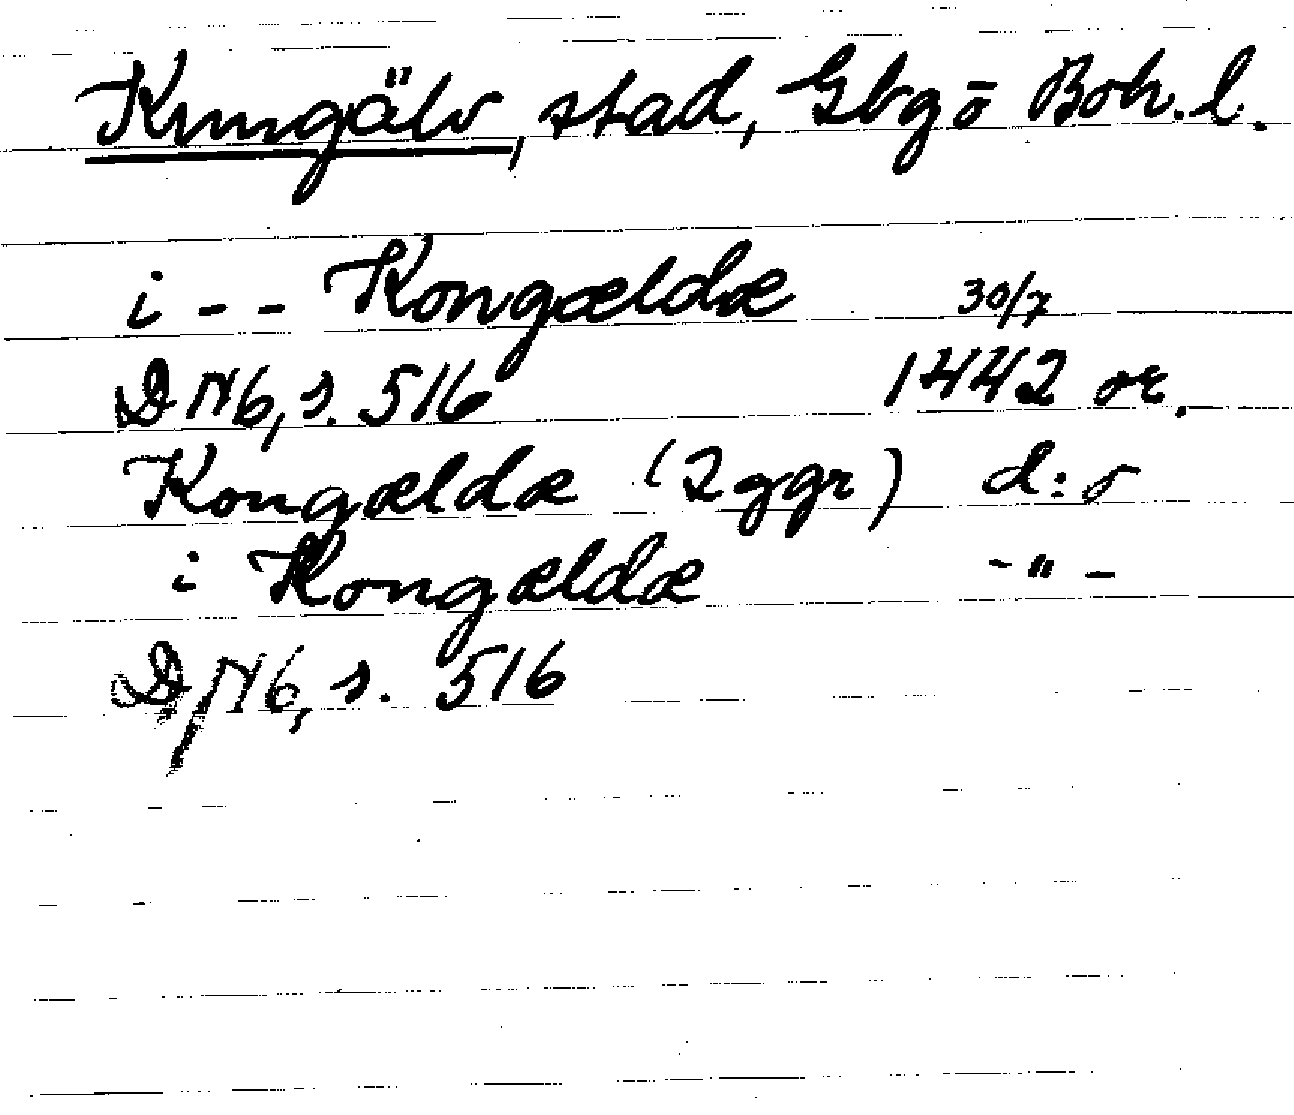 Kungälv, stad, Gbg o Boh. l.
i - - Kongældæ 30/7
DN 6, s. 516 1442 or.
Kongældæ (2 ggr) d:o
i Kongældæ - " -
DN 6, s. 516